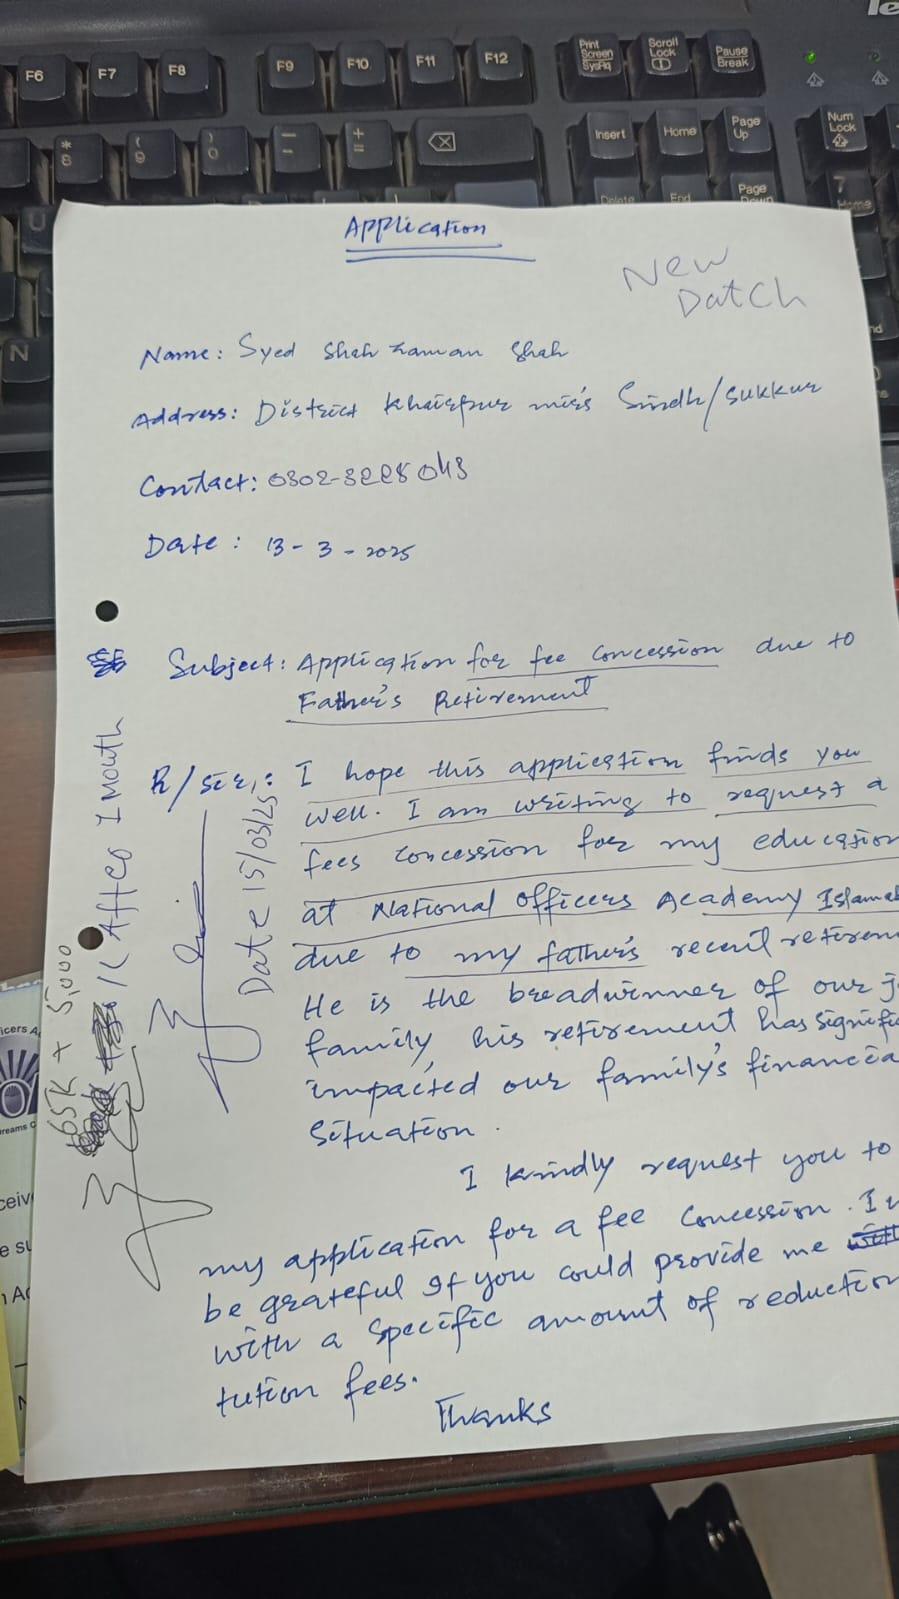 F6 F7 F8 F9 F10 F11 F12 Print Screen SysRq Scroll Lock Pause Break
* 8 ( 9 ) 0 _ - + = Insert Home Page Up Num Lock
U Delete End Page Down 7 Home
N
Application
New
Datch
Name: Syed Shah Zaman Shah
Address: District Khairpur mir's Sindh/Sukkur
Contact: 0302-3228043
Date: 13-3-2025
Subject: Application for fee concession due to
Father's Retirement
R/sir,: I hope this application finds you
well. I am writing to request a
fees concession for my education
at National Officers Academy Islamab
due to my father's recent retirem
He is the breadwinner of our j
family, his retirement has signific
impacted our family's financia
situation.
I kindly request you to
my application for a fee concession. I w
be grateful if you could provide me
with a specific amount of reduction
tution fees.
Thanks
Date 15/03/25
65K + 5,000
After 1 Month
icers A
reams
ceiv
e su
n Ac